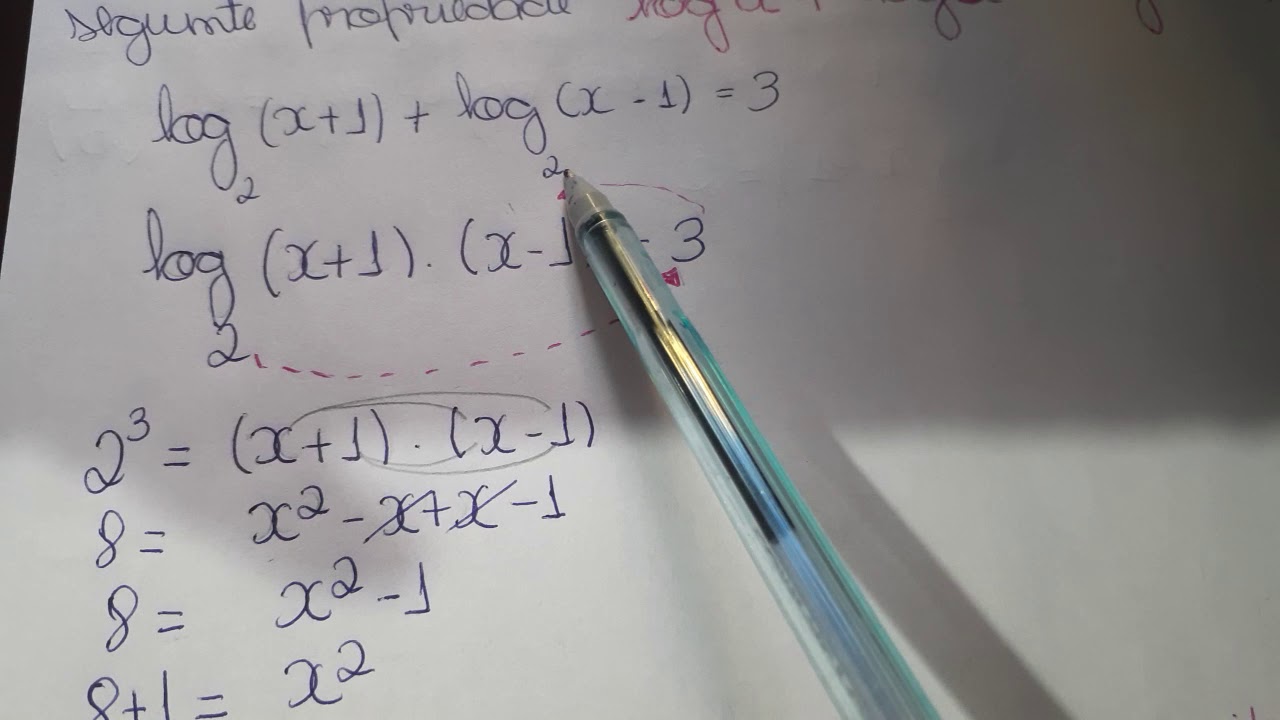 segunte propriedade log
log₂(x+1) + log₂(x-1) = 3
log₂(x+1).(x-1) = 3
2³ = (x+1).(x-1)
8 = x² - x + x - 1
8 = x² - 1
8+1 = x²